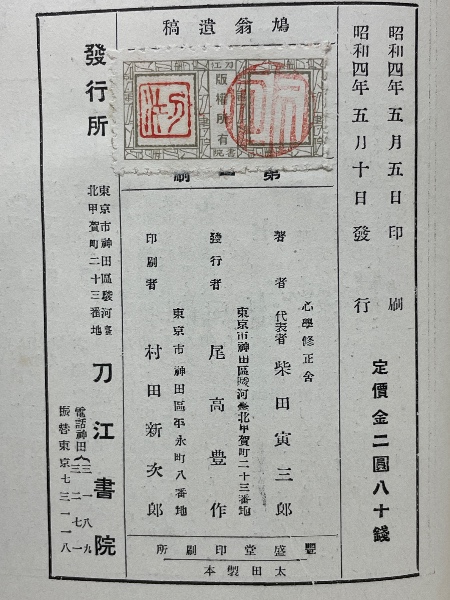 昭和四年五月五日印刷
昭和四年五月十日發行
定價金二圓八十錢
鳩翁遺稿
刀江書院
版權所有
第一刷
心學修正舍
著者 代表者 柴田寅三郎
東京市神田區駿河臺北甲賀町二十三番地
發行者 尾高豊作
東京市神田區平永町八番地
印刷者 村田新次郎
豐盛堂印刷所
太田製本
發行所
東京市神田區駿河臺
北甲賀町二十三番地
刀江書院
電話神田
振替東京七三一一八